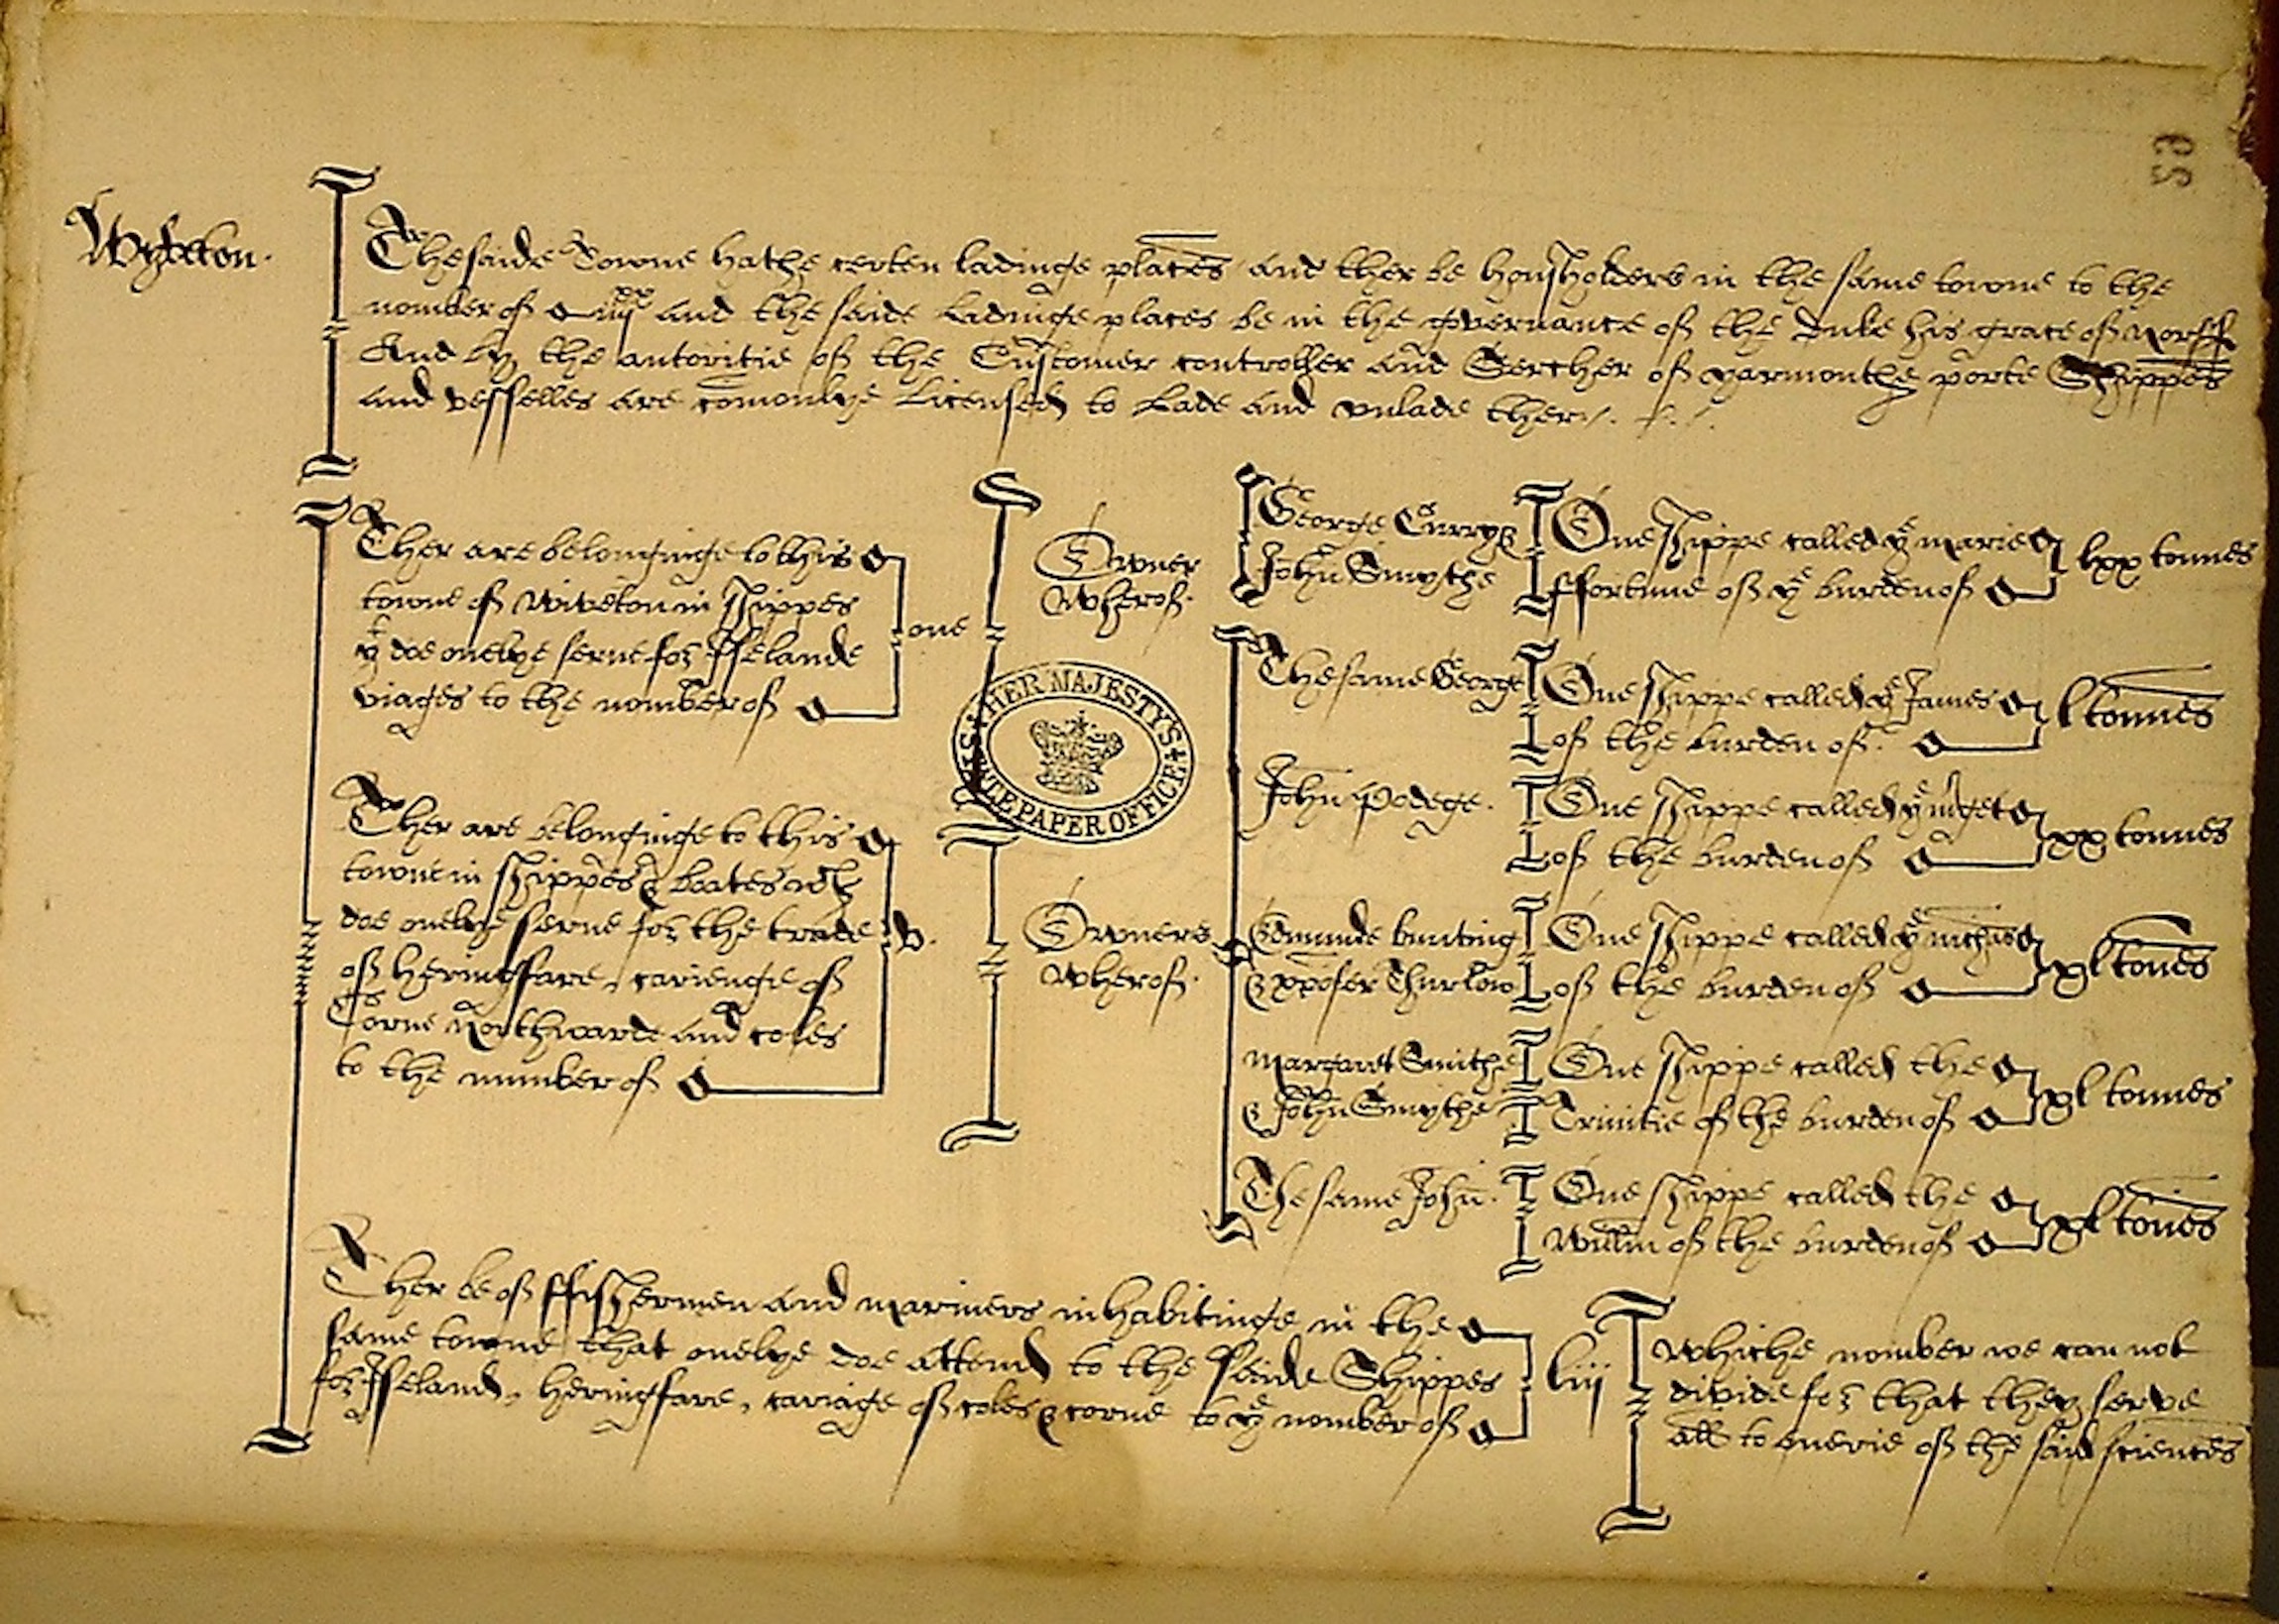 62
Wyveton.
The saide Towne hathe certen ladinge places and ther be housholders in the same towne to the
nomber of iiijxx and the saide Ladinge places be in the governance of the Duke his grace of Norff
And by the autoritie of the Customer controller and Sercher of yarmouthe porte Shippes
and vesselles are comonlye Licensed to Lade and unlade ther
Ther are belonginge to this
towne of Wiveton in shippes
yt doe onelye serve for Iselande
viages to the nomber of
one
Owner
wherof.
George Currye
John Smythe
One shippe called ye marie
ffortune of ye burden of
lxx tonnes
The same George
One shippe called ye James
of the burden of.
l tonnes
John Podege.
One shippe called ye
of the burden of
xx tonnes
HER MAJESTY'S
STATE PAPER OFFICE
Ther are belonginge to this
towne in shippes & boates wch
doe onelye serve for the trade
of heringfare, carienge of
Corne Northwarde and coles
to the number of
v.
Owners
wherof.
Edmunde bunting
& xpofer Thurlow
One shippe called ye nichus
of the burden of
xl tones
Margaret Smithe
& John Smythe
One shippe called the
Trinitie of the burden of
xl tonnes
The same John.
One shippe called the
Willm of the burden of
xl tones
Ther be of ffishermen and mariners inhabitinge in the
same towne that onelye doe attend to the saide Shippes
for Iseland, heringfare, cariage of coles & corne to ye nomber of
liij
Whiche nomber we can not
divide for that they serve
all to everie of the said sciences